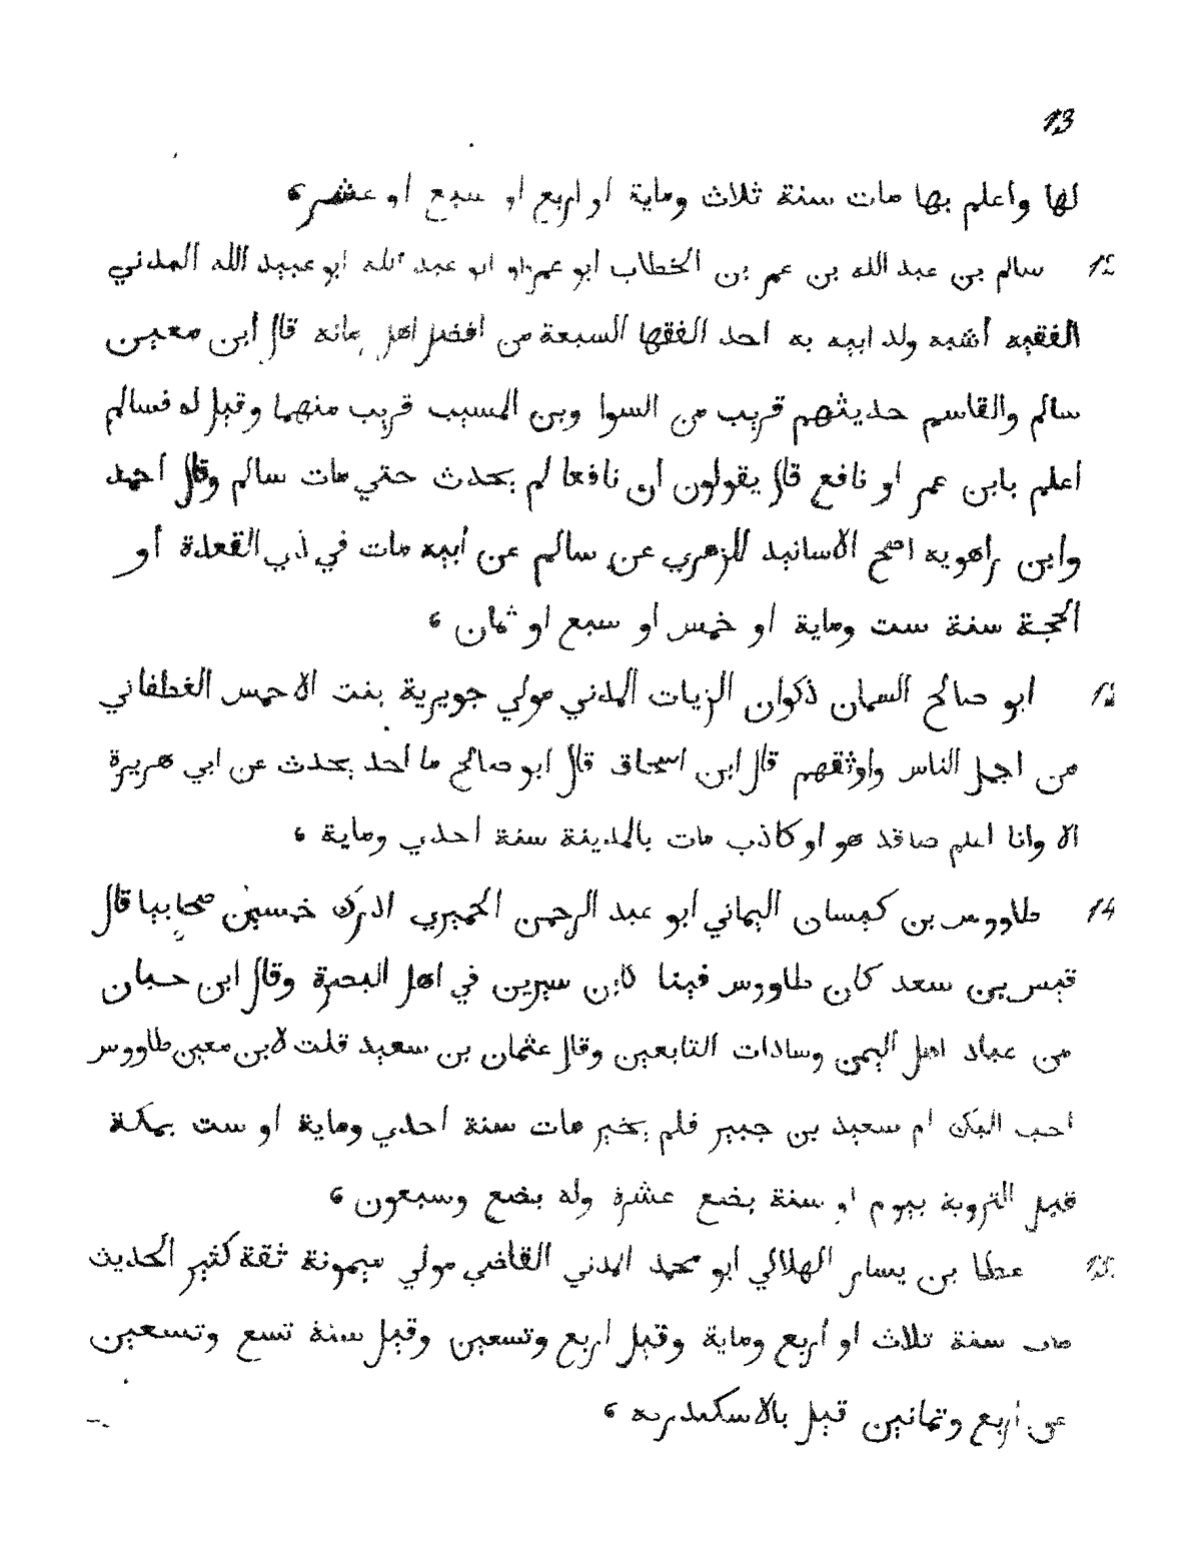 13
لها واعلم بها مات سنة ثلاث وماية او اربع او سبع او عشر،
12 سالم بن عبد الله بن عمر بن الخطاب ابو عمر او ابو عبد الله ابو عبيد الله المدني
الفقيه أشبه ولد ابيه به احد الفقها السبعة من افضل اهل مانه قال أبن معين
سالم والقاسم حديثهم قريب من السوا وبن المسيب قريب منهما وقيل له فسالم
اعلم بابن عمر او نافع قال يقولون ان نافعا لم يحدث حتي مات سالم وقال احمد
وابن راهويه اصح الاسانيد للزهري عن سالم عن أبيه مات في ذي القعدة أو
الحجة سنة ست وماية او خمس او سبع او ثمان ،
13 ابو صالح السمان ذكوان الزيات المدني مولي جويرية بنت الاحمس الغطفاني
من اجل الناس واوثقهم قال ابن اسحاق قال ابو صالح ما أحد يحدث عن ابي هريرة
الا وانا اعلم صادقا هو او كاذب مات بالمدينة سنة احدي وماية ،
14 طاووس بن كيسان اليماني أبو عبد الرحمن الحميري ادرك خمسين صحابيا قال
قيس بن سعد كان طاووس فينا كابن سيرين في اهل البصرة وقال ابن حبان
من عباد اهل اليمن وسادات التابعين وقال عثمان بن سعيد قلت لابن معين طاووس
احب اليك ام سعيد بن جبير فلم يخير مات سنة احدي وماية او ست بمكة
قبل التروية بيوم او سنة بضع عشرة وله بضع وسبعون ،
15 عطا بن يسار الهلالي ابو محمد المدني القاضي مولي ميمونة ثقة كثير الحديث
مات سنة ثلاث او أربع وماية وقيل اربع وتسعين وقيل سنة تسع وتسعين
عن اربع وثمانين قيل بالاسكندريه ،